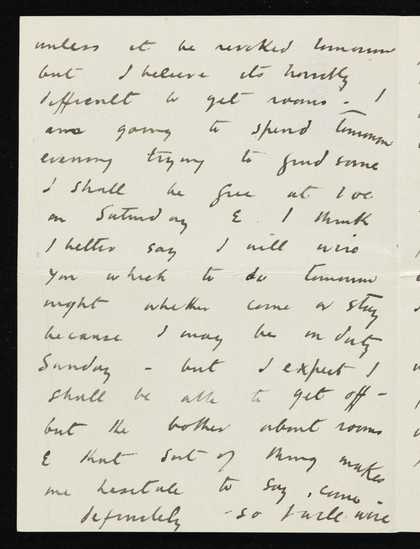 unless it be revoked tomorrow
but I believe its horribly
difficult to get rooms - I
am going to spend tomorrow
evening trying to find some
I shall be free at 1 oc
on Saturday & I think
I better say I will wire
you which to do tomorrow
night whether come or stay
because I may be on duty
Sunday - but I expect I
shall be able to get off -
but the bother about rooms
& that sort of thing makes
me hesitate to say, come -
definitely - so I will wire